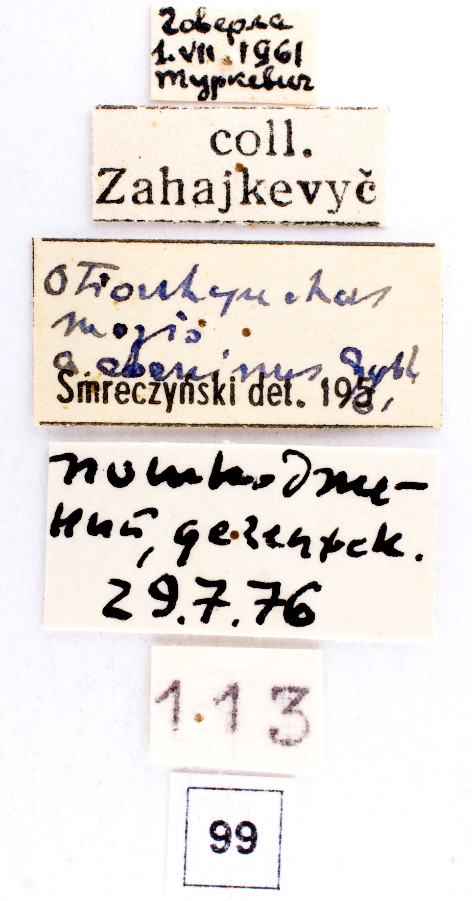 Говерла
1.VII.1961
Туркевич
coll.
Zahajkevyč
Otiorrhynchus
morio
a. ebeninus Gyll
Smreczyński det. 195
29.7.76
1.13
99